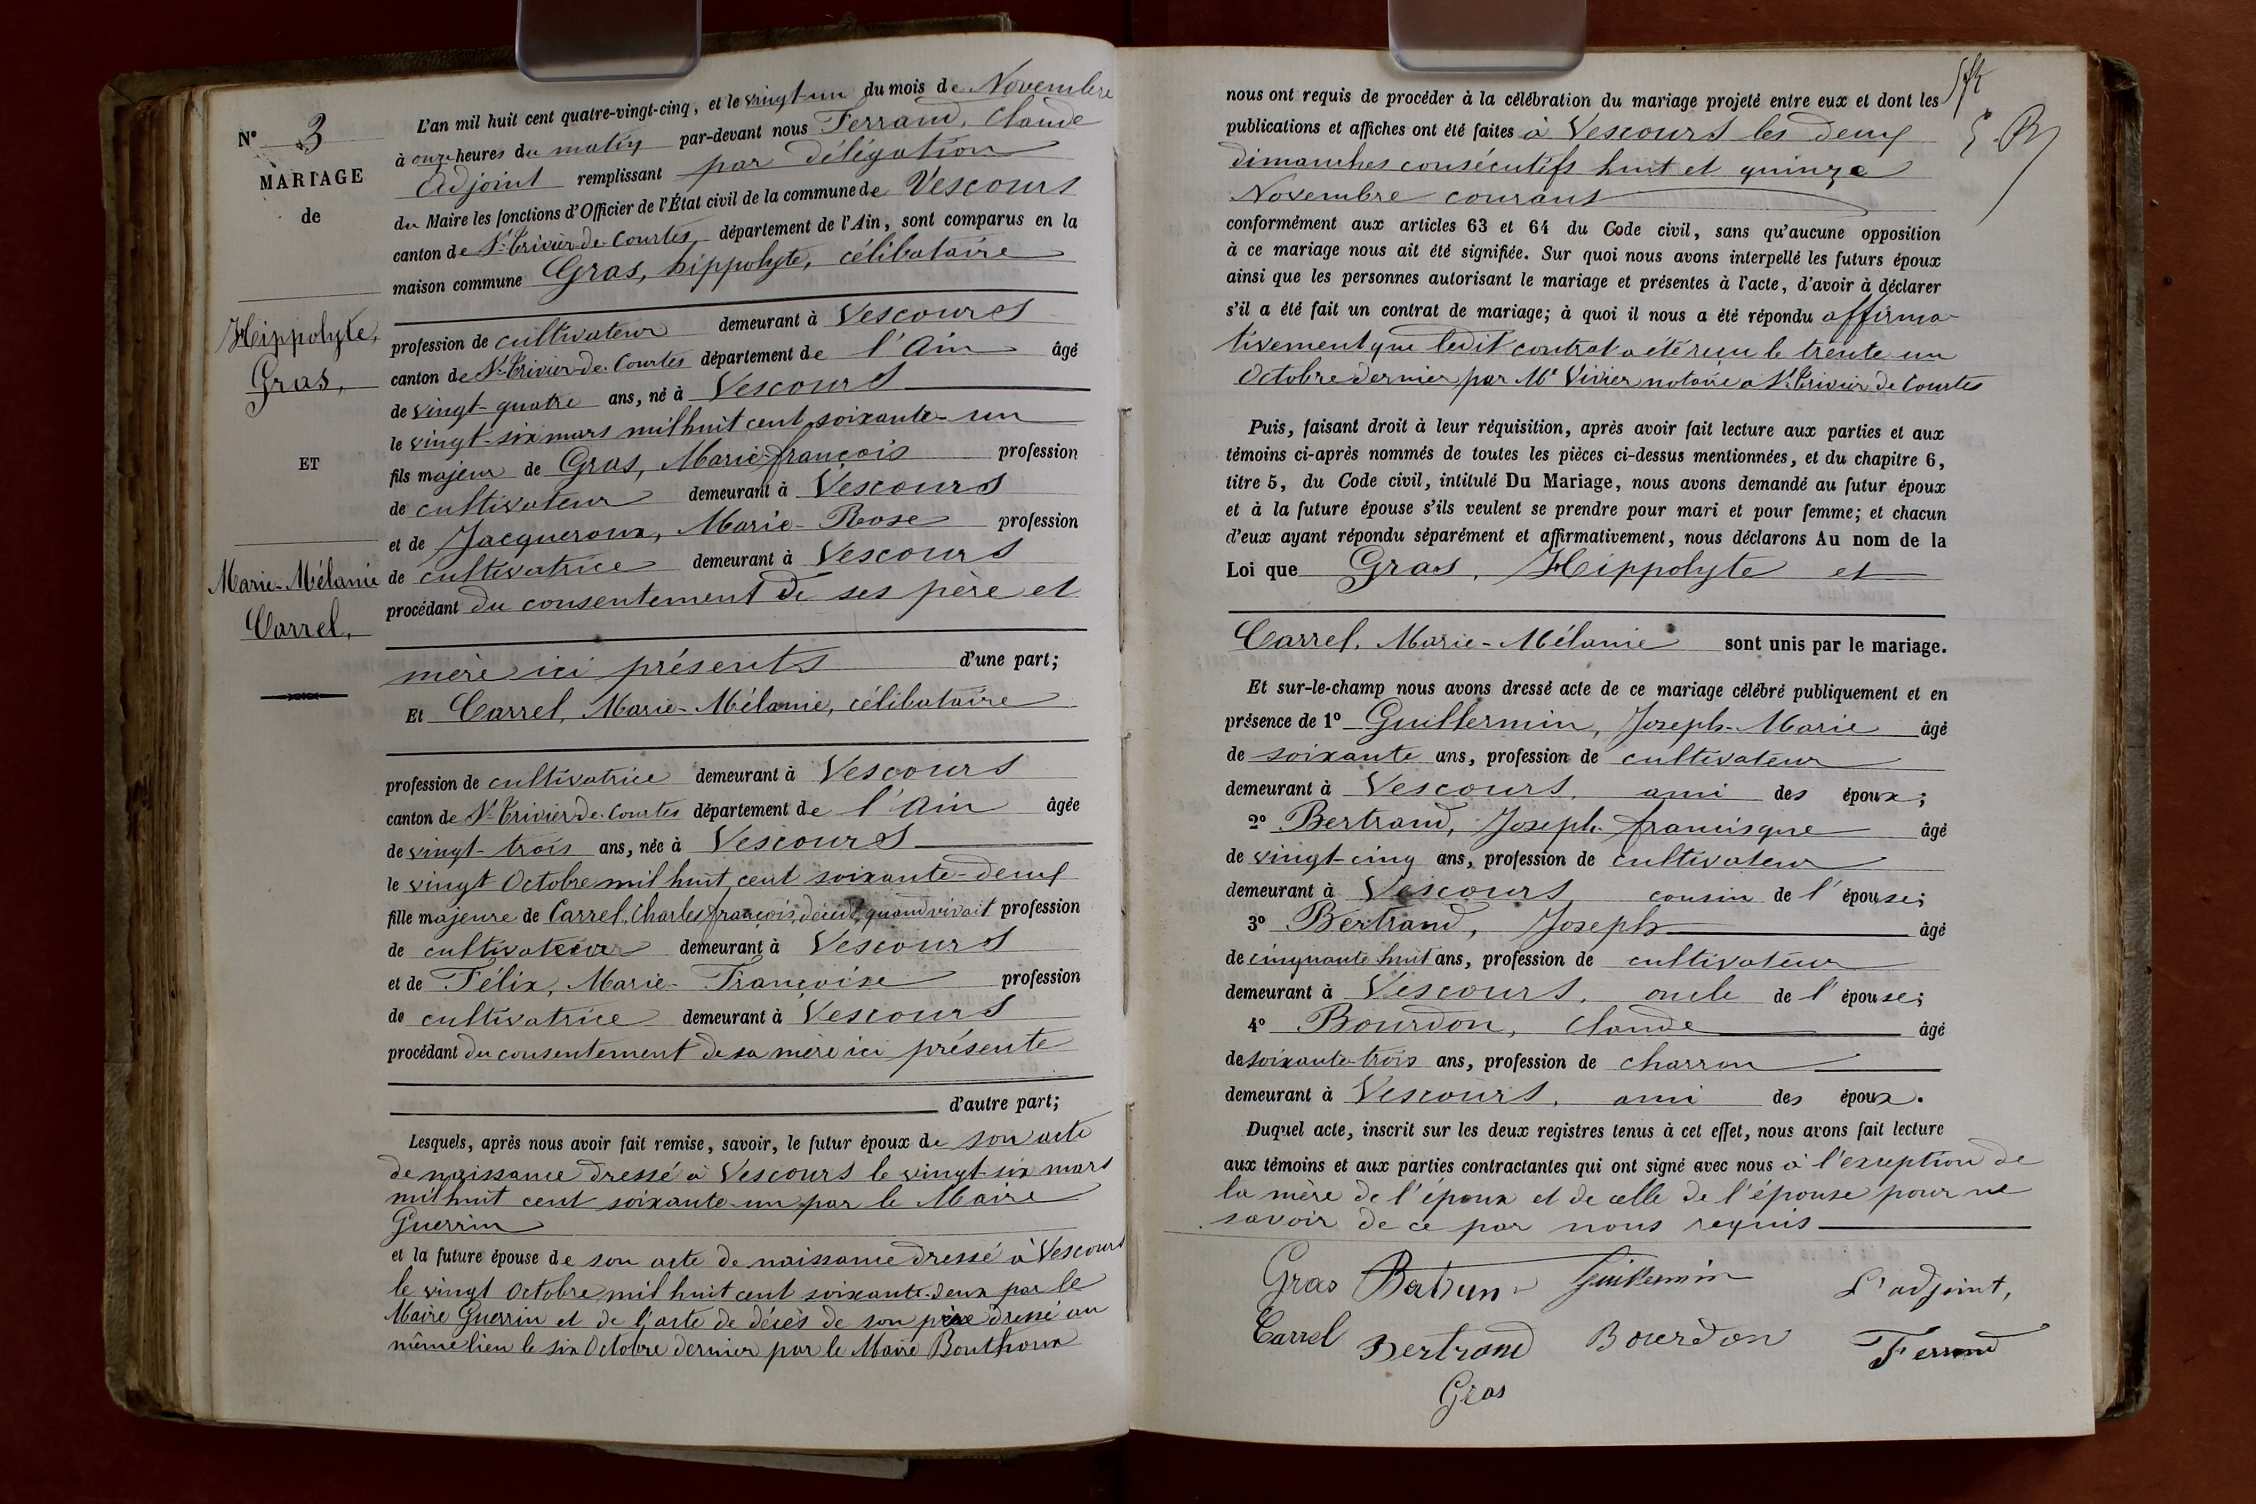 N° 3
MARIAGE
de
Hippolyte,
Gras,
ET
Marie-Mélanie
Carrel,
L'an mil huit cent quatre-vingt-cinq, et le vingt-un du mois de Novembre
à onze heures du matin par-devant nous Ferrand, Claude
Adjoint remplissant par délégation
du Maire les fonctions d'Officier de l'État civil de la commune de Vescours
canton de St-Trivier-de-Courtes, département de l'Ain, sont comparus en la
maison commune Gras, hippolyte, célibataire
profession de cultivateur demeurant à Vescours
canton de St-Trivier-de-Courtes département de l'Ain âgé
de vingt-quatre ans, né à Vescours
le vingt-six mars mil huit cent soixante-un
fils majeur de Gras, Marie-françois profession
de cultivateur demeurant à Vescours
et de Jacqueroux, Marie-Rose profession
de cultivatrice demeurant à Vescours
procédant du consentement de ses père et
mère ici présents d'une part;
Et Carrel, Marie-Mélanie, célibataire
profession de cultivatrice demeurant à Vescours
canton de St-Trivier-de-Courtes département de l'Ain âgée
de vingt-trois ans, née à Vescours
le vingt Octobre mil huit cent soixante-deux
fille majeure de Carrel, Charles françois, décédé, quand vivait profession
de cultivateur demeurant à Vescours
et de Félix, Marie-Françoise profession
de cultivatrice demeurant à Vescours
procédant du consentement de sa mère ici présente
d'autre part;
Lesquels, après nous avoir fait remise, savoir, le futur époux de son acte
de naissance dressé à Vescours le vingt-six mars
mil huit cent soixante-un par le Maire
Guerrin
et la future épouse de son acte de naissance dressé à Vescours
le vingt Octobre mil huit cent soixante-deux par le
Maire Guerrin et de l'acte de décès de son père dressé au
même lieu le six Octobre dernier par le Maire Bouthoux
nous ont requis de procéder à la célébration du mariage projeté entre eux et dont les
publications et affiches ont été faites à Vescours les deux
dimanches consécutifs huit et quinze
Novembre courant
conformément aux articles 63 et 64 du Code civil, sans qu'aucune opposition
à ce mariage nous ait été signifiée. Sur quoi nous avons interpellé les futurs époux
ainsi que les personnes autorisant le mariage et présentes à l'acte, d'avoir à déclarer
s'il a été fait un contrat de mariage; à quoi il nous a été répondu affirma-
tivement que ledit contrat a été reçu le trente un
Octobre dernier par Me Vivier notaire à St-Trivier de Courtes
Puis, faisant droit à leur réquisition, après avoir fait lecture aux parties et aux
témoins ci-après nommés de toutes les pièces ci-dessus mentionnées, et du chapitre 6,
titre 5, du Code civil, intitulé Du Mariage, nous avons demandé au futur époux
et à la future épouse s'ils veulent se prendre pour mari et pour femme; et chacun
d'eux ayant répondu séparément et affirmativement, nous déclarons Au nom de la
Loi que Gras, Hippolyte et
Carrel, Marie-Mélanie sont unis par le mariage.
Et sur-le-champ nous avons dressé acte de ce mariage célébré publiquement et en
présence de 1° Guillermin, Joseph-Marie âgé
de soixante ans, profession de cultivateur
demeurant à Vescours, ami des époux;
2° Bertrand, Joseph-francisque âgé
de vingt-cinq ans, profession de cultivateur
demeurant à Vescours cousin de l'épouse;
3° Bertrand, Joseph âgé
de cinquante huit ans, profession de cultivateur
demeurant à Vescours, oncle de l'épouse;
4° Bourdon, Claude âgé
de soixante-trois ans, profession de charron
demeurant à Vescours, ami des époux.
Duquel acte, inscrit sur les deux registres tenus à cet effet, nous avons fait lecture
aux témoins et aux parties contractantes qui ont signé avec nous à l'exception de
la mère de l'époux et de celle de l'épouse pour ne
savoir de ce par nous requis
Gras Guillermin L'adjoint,
Carrel Bertrand Bourdon Ferrand
Gras